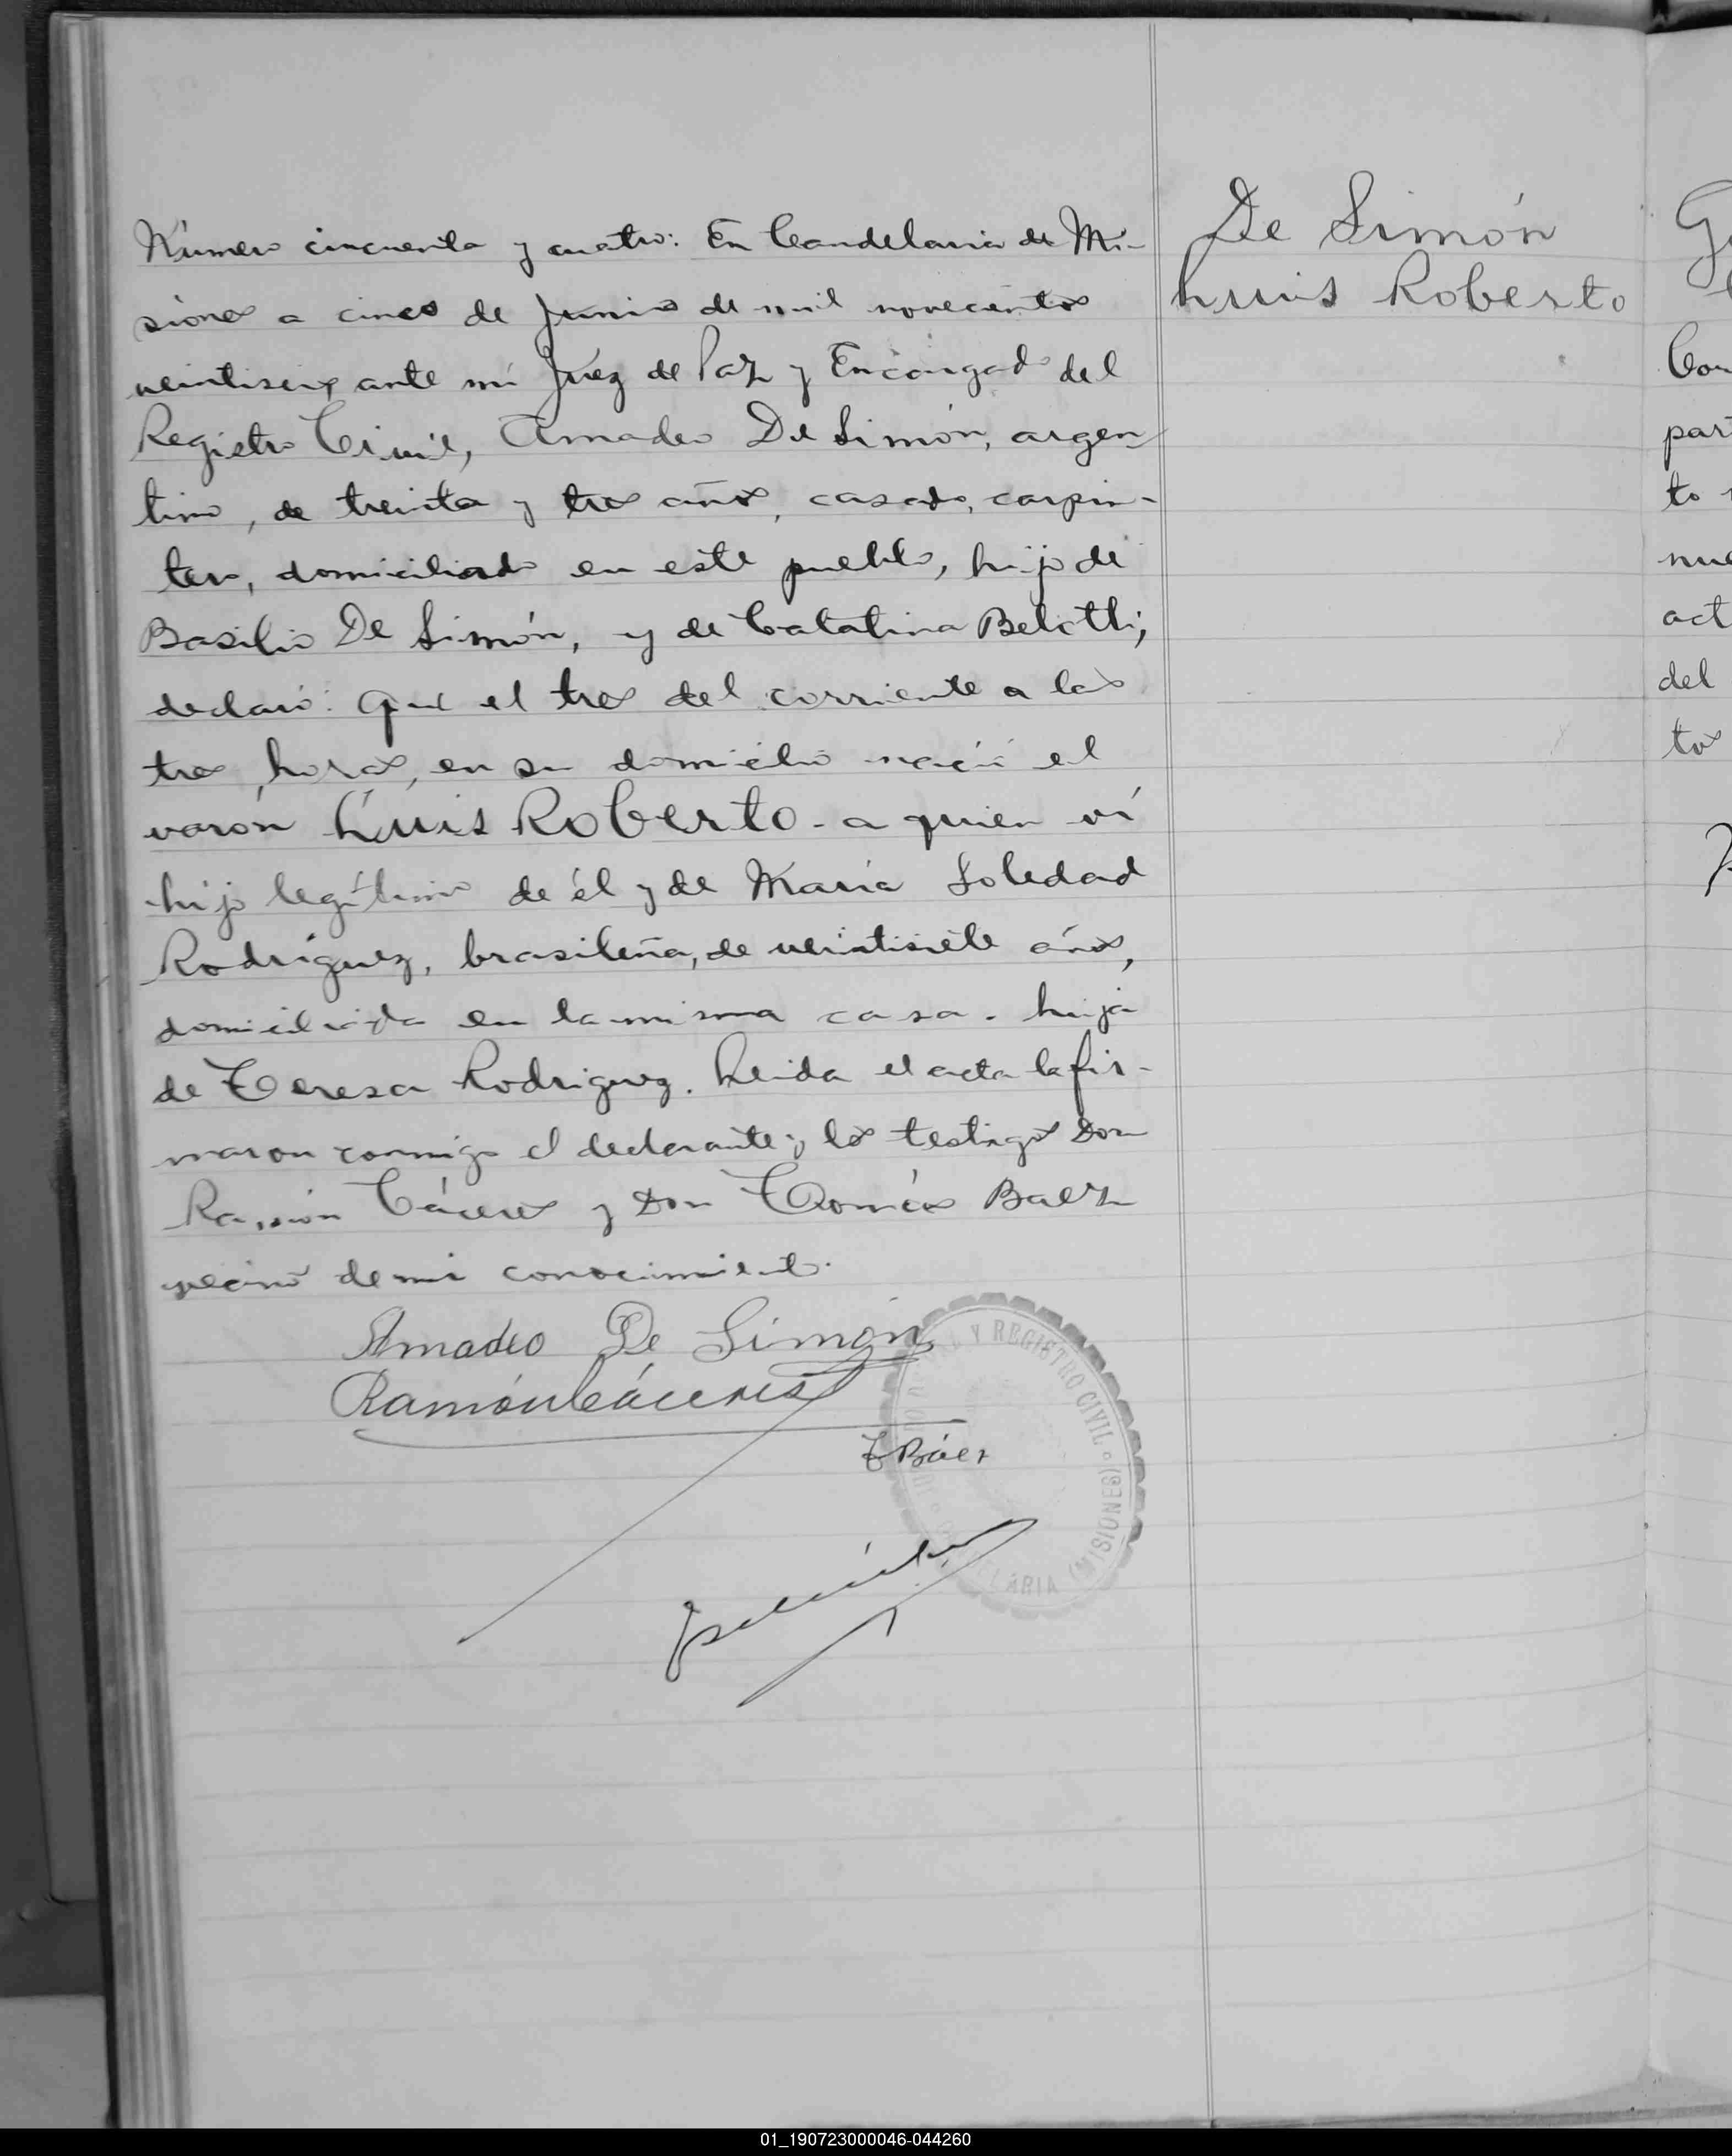 Número cincuenta y cuatro: En Candelaria de Mi-
siones a cinco de Junio de mil novecientos
veintiseis, ante mí Juez de Paz y Encargado del
Registro Civil, Amadeo De Simón, argen
tino, de treinta y tres años, casado, carpin-
tero, domiciliado en este pueblo, hijo de
Basilio De Simón, y de Catalina Belotti;
declaró: Que el tres del corriente a las
tres horas, en su domicilio nació el
varón Luis Roberto - a quien ví
hijo legítimo de él y de María Soledad
Rodríguez, brasileña, de veintisiete años,
domiciliada en la misma casa. hija
de Teresa Rodriguez. Leida el acta la fir-
maron conmigo el declarante y los testigos Don
Ramón Cáceres y Don Tomás Baez
vecinos de mi conocimiento.
Amadeo De Simón
Ramón Cáceres
T Báez
Y REGISTRO CIVIL
(MISIONES)
De Simón
Luis Roberto
par
to
nue
act
del
tos
01_190723000046-044260